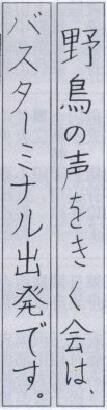 野鳥の声をきく会は、
バスターミナル出発です。